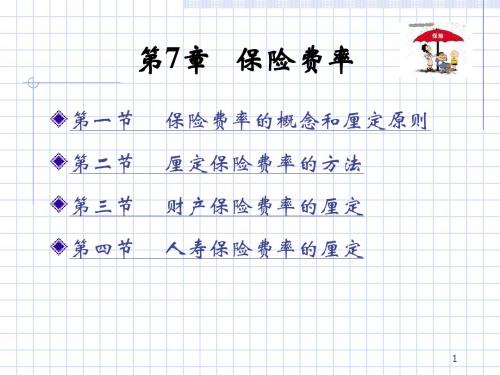 保险
第7章 保险费率
第一节 保险费率的概念和厘定原则
第二节 厘定保险费率的方法
第三节 财产保险费率的厘定
第四节 人寿保险费率的厘定
1